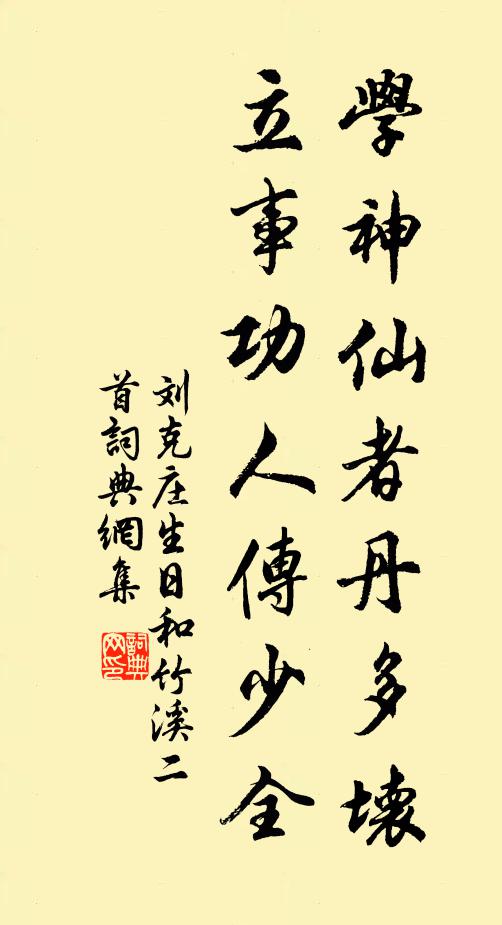 學神仙者丹多壞
立事功人傳少全
刘克庄生日和竹溪二
首詞典網集
詞典
网印